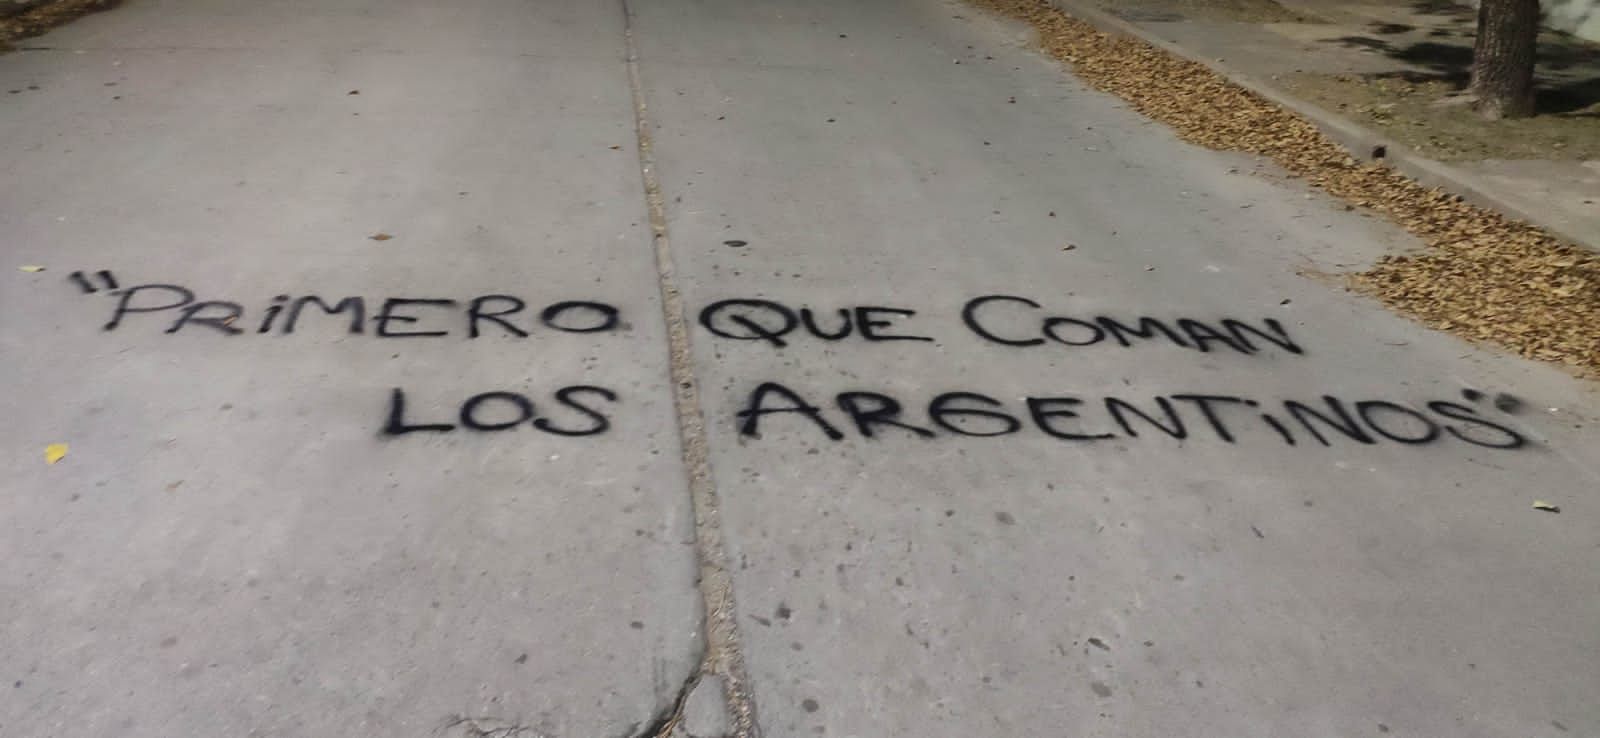 "PRiMERO QUE COMAN
LOS ARGENTiNOS"